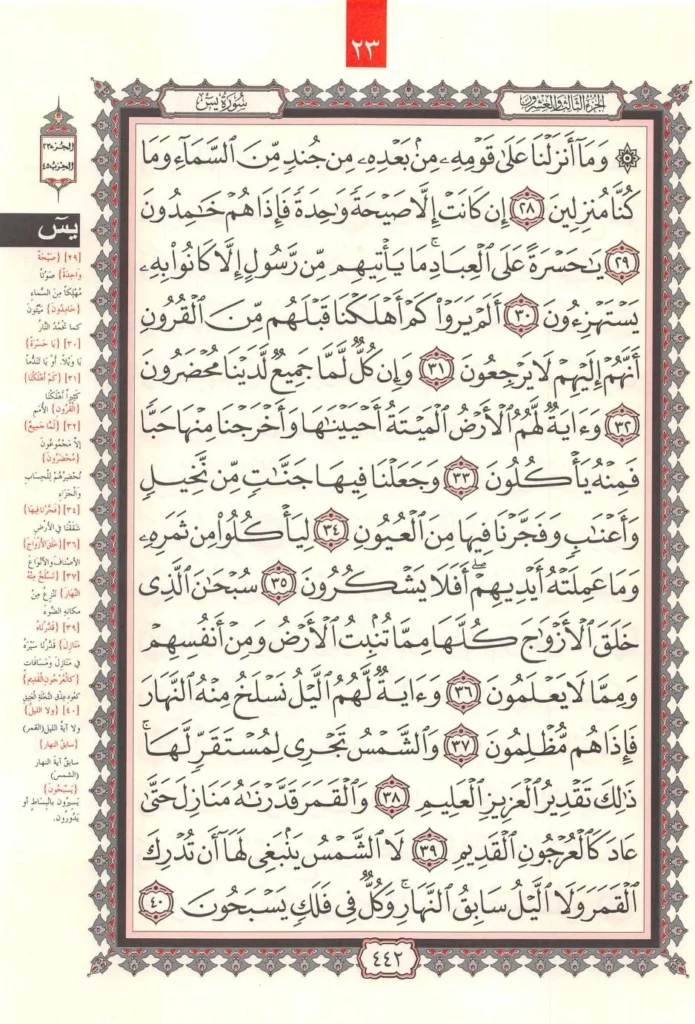 ٢٣
سُورَةُ يسٓ
الجزء الثالث والعشرون
۞ وَمَآ أَنزَلْنَا عَلَىٰ قَوْمِهِۦ مِنۢ بَعْدِهِۦ مِن جُندٍ مِّنَ ٱلسَّمَآءِ وَمَا
كُنَّا مُنزِلِينَ ٢٨ إِن كَانَتْ إِلَّا صَيْحَةً وَٰحِدَةً فَإِذَا هُمْ خَٰمِدُونَ
٢٩ يَٰحَسْرَةً عَلَى ٱلْعِبَادِ ۚ مَا يَأْتِيهِم مِّن رَّسُولٍ إِلَّا كَانُوا۟ بِهِۦ
يَسْتَهْزِءُونَ ٣٠ أَلَمْ يَرَوْا۟ كَمْ أَهْلَكْنَا قَبْلَهُم مِّنَ ٱلْقُرُونِ
أَنَّهُمْ إِلَيْهِمْ لَا يَرْجِعُونَ ٣١ وَإِن كُلٌّ لَّمَّا جَمِيعٌ لَّدَيْنَا مُحْضَرُونَ
٣٢ وَءَايَةٌ لَّهُمُ ٱلْأَرْضُ ٱلْمَيْتَةُ أَحْيَيْنَٰهَا وَأَخْرَجْنَا مِنْهَا حَبًّا
فَمِنْهُ يَأْكُلُونَ ٣٣ وَجَعَلْنَا فِيهَا جَنَّٰتٍ مِّن نَّخِيلٍ
وَأَعْنَٰبٍ وَفَجَّرْنَا فِيهَا مِنَ ٱلْعُيُونِ ٣٤ لِيَأْكُلُوا۟ مِن ثَمَرِهِۦ
وَمَا عَمِلَتْهُ أَيْدِيهِمْ ۖ أَفَلَا يَشْكُرُونَ ٣٥ سُبْحَٰنَ ٱلَّذِى
خَلَقَ ٱلْأَزْوَٰجَ كُلَّهَا مِمَّا تُنۢبِتُ ٱلْأَرْضُ وَمِنْ أَنفُسِهِمْ
وَمِمَّا لَا يَعْلَمُونَ ٣٦ وَءَايَةٌ لَّهُمُ ٱلَّيْلُ نَسْلَخُ مِنْهُ ٱلنَّهَارَ
فَإِذَا هُم مُّظْلِمُونَ ٣٧ وَٱلشَّمْسُ تَجْرِى لِمُسْتَقَرٍّ لَّهَا ۚ
ذَٰلِكَ تَقْدِيرُ ٱلْعَزِيزِ ٱلْعَلِيمِ ٣٨ وَٱلْقَمَرَ قَدَّرْنَٰهُ مَنَازِلَ حَتَّىٰ
عَادَ كَٱلْعُرْجُونِ ٱلْقَدِيمِ ٣٩ لَا ٱلشَّمْسُ يَنۢبَغِى لَهَآ أَن تُدْرِكَ
ٱلْقَمَرَ وَلَا ٱلَّيْلُ سَابِقُ ٱلنَّهَارِ ۚ وَكُلٌّ فِى فَلَكٍ يَسْبَحُونَ ٤٠
٤٤٢
الجزء ٢٣
الحزب ٤٥
يسٓ
[٢٩] {صَيْحَةً
وَاحِدَةً} صَوْتاً
مُهْلِكاً مِنَ السَّماءِ
{خَامِدُونَ} مَيِّتُونَ
كما تَخْمُدُ النَّارُ
[٣٠] {يَا حَسْرَةً}
يَا وَيْلاً، أَوْ يَا تَنَدُّماً
[٣١] {كَمْ أَهْلَكْنَا}
كَثِيراً أَهْلَكْنَا
{الْقُرُونِ} الأُمَمِ
[٣٢] {لَمَّا جَمِيعٌ}
إِلَّا مَجْمُوعُونَ
{مُحْضَرُونَ}
نُحْضِرُهُمْ لِلْحِسَابِ
وَالْجَزَاءِ
[٣٤] {فَجَّرْنَا فِيهَا}
شَقَقْنَا فِي الأَرْضِ
[٣٦] {خَلَقَ الأَزْوَاجَ}
الأَصْنَافَ وَالأَنْوَاعَ
[٣٧] {نَسْلَخُ مِنْهُ
النَّهَارَ} نَنْزِعُ مِنْ
مكانِهِ الضَّوْءَ
[٣٩] {قَدَّرْنَاهُ
مَنَازِلَ} قَدَّرْنَا سَيْرَهُ
فِي مَنَازِلَ وَمَسَافَاتٍ
{كَالْعُرْجُونِ الْقَدِيمِ}
كَعُودِ عِذْقِ النَّخْلَةِ الْعَتِيقِ
[٤٠] {ولا الليلُ}
ولا آيةُ الليلِ (القمر)
{سابقُ النهارِ}
سابقُ آيةَ النهار
(الشمسَ)
{يَسْبَحُونَ}
يَسِيرُون بانْبِسَاطٍ أو
يَدُورُون.